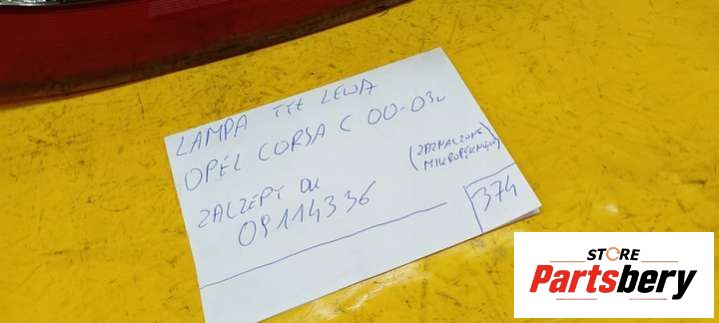 LAMPA TYŁ LEWA
OPEL CORSA C 00-03r
(ZAZNACZONE
MIKROPĘKNIĘCIA)
ZACZEPY OK
09114336
374
STORE
Partsbery